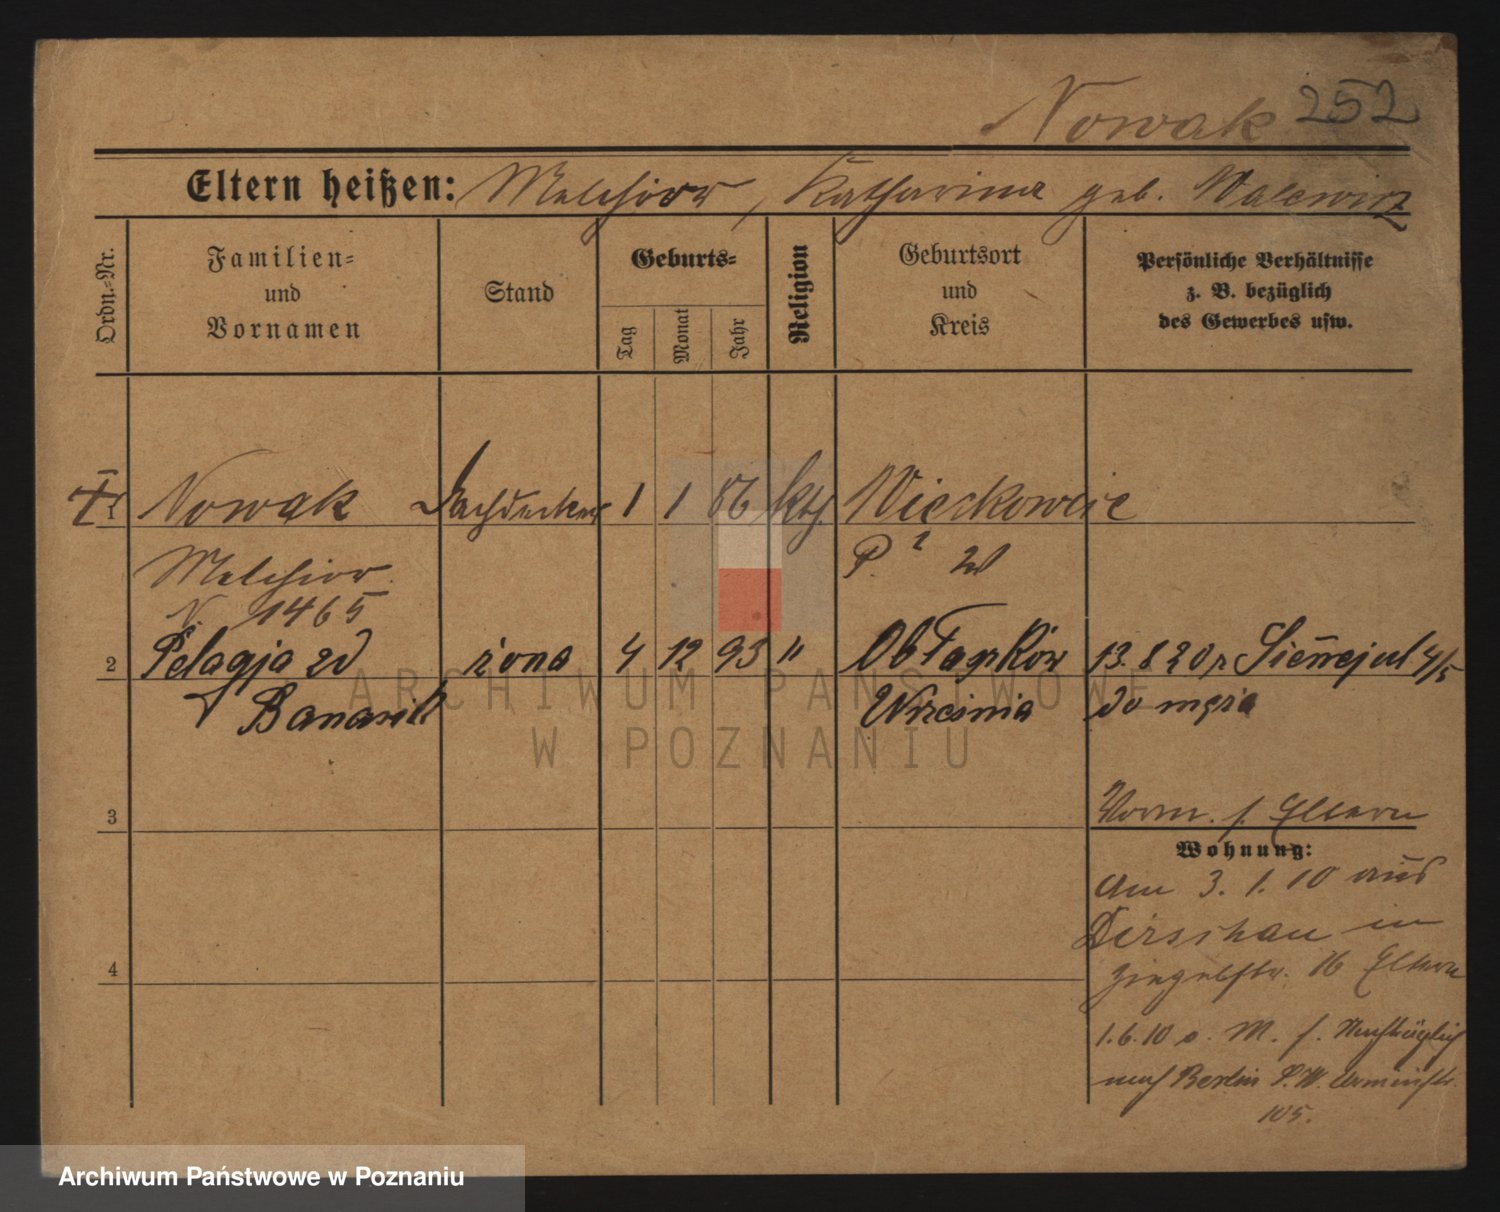 Nowak 252
Eltern heißen: Melchior, Katharina geb. Walewicz
Ordn.-Nr.
Familien-
und
Vornamen
Stand
Geburts-
Tag
Monat
Jahr
Religion
Geburtsort
und
Kreis
Persönliche Verhältnisse
z. B. bezüglich
des Gewerbes usw.
1 Nowak Dachdecker 1 1 86 kth. Wieckowice
Melchior P.
N 1465
2 Pelagja zd żona 4 12 93 " Obłaczków 13. 8 20
Banasik Września do męża
3
Vorm. s. Eltern
Wohnung:
Am 3. 1. 10 aus
Dirschau in
Ziegelstr. 16 Eltern
4
1. 6. 10 o. M. s. Nachträglich
nach Berlin N.W. Arminstr.
105.
ARCHIWUM PAŃSTWOWE
W POZNANIU
Archiwum Państwowe w Poznaniu